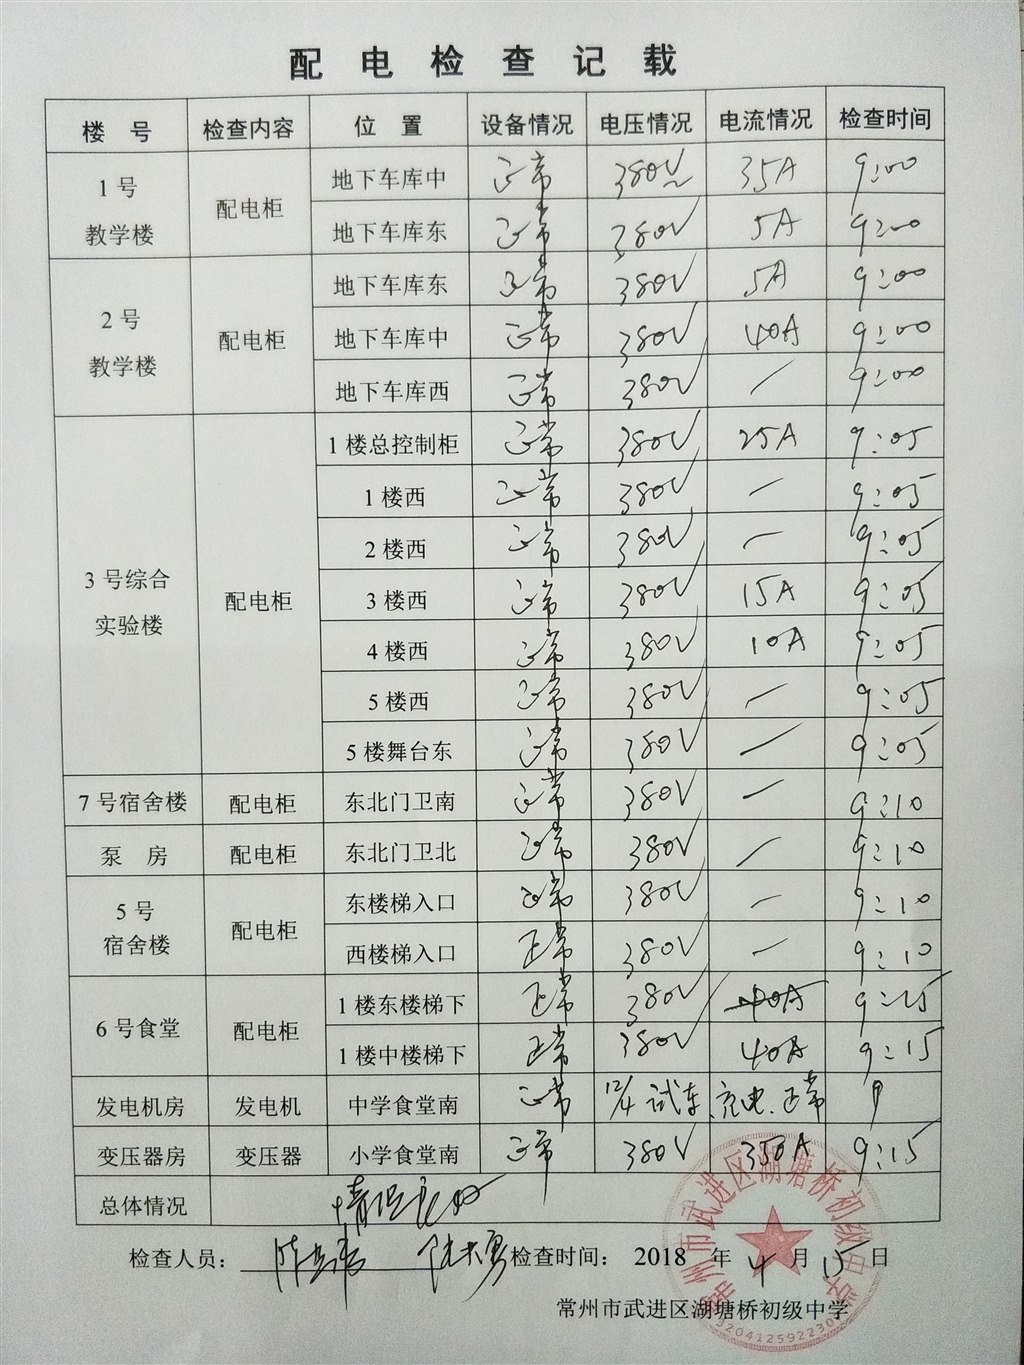 配电检查记载
楼 号 检查内容 位 置 设备情况 电压情况 电流情况 检查时间
1号教学楼 配电柜 地下车库中 正常 380V 35A 9:00
地下车库东 正常 380V 5A 9:00
2号教学楼 配电柜 地下车库东 正常 380V 5A 9:00
地下车库中 正常 380V 40A 9:00
地下车库西 正常 380V / 9:00
3号综合实验楼 配电柜 1楼总控制柜 正常 380V 25A 9:05
1楼西 正常 380V / 9:05
2楼西 正常 380V / 9:05
3楼西 正常 380V 15A 9:05
4楼西 正常 380V 10A 9:05
5楼西 正常 380V / 9:05
5楼舞台东 正常 380V / 9:05
7号宿舍楼 配电柜 东北门卫南 正常 380V / 9:10
泵 房 配电柜 东北门卫北 正常 380V / 9:10
5号宿舍楼 配电柜 东楼梯入口 正常 380V / 9:10
西楼梯入口 正常 380V / 9:10
6号食堂 配电柜 1楼东楼梯下 正常 380V 40A 9:15
1楼中楼梯下 正常 380V 40A 9:15
发电机房 发电机 中学食堂南 正常 12/4 试车、充电、正常
变压器房 变压器 小学食堂南 正常 380V 350A 9:15
总体情况 情况良好
检查人员： 检查时间： 2018 年 4 月 15 日
常州市武进区湖塘桥初级中学
常州市武进区湖塘桥初级中学